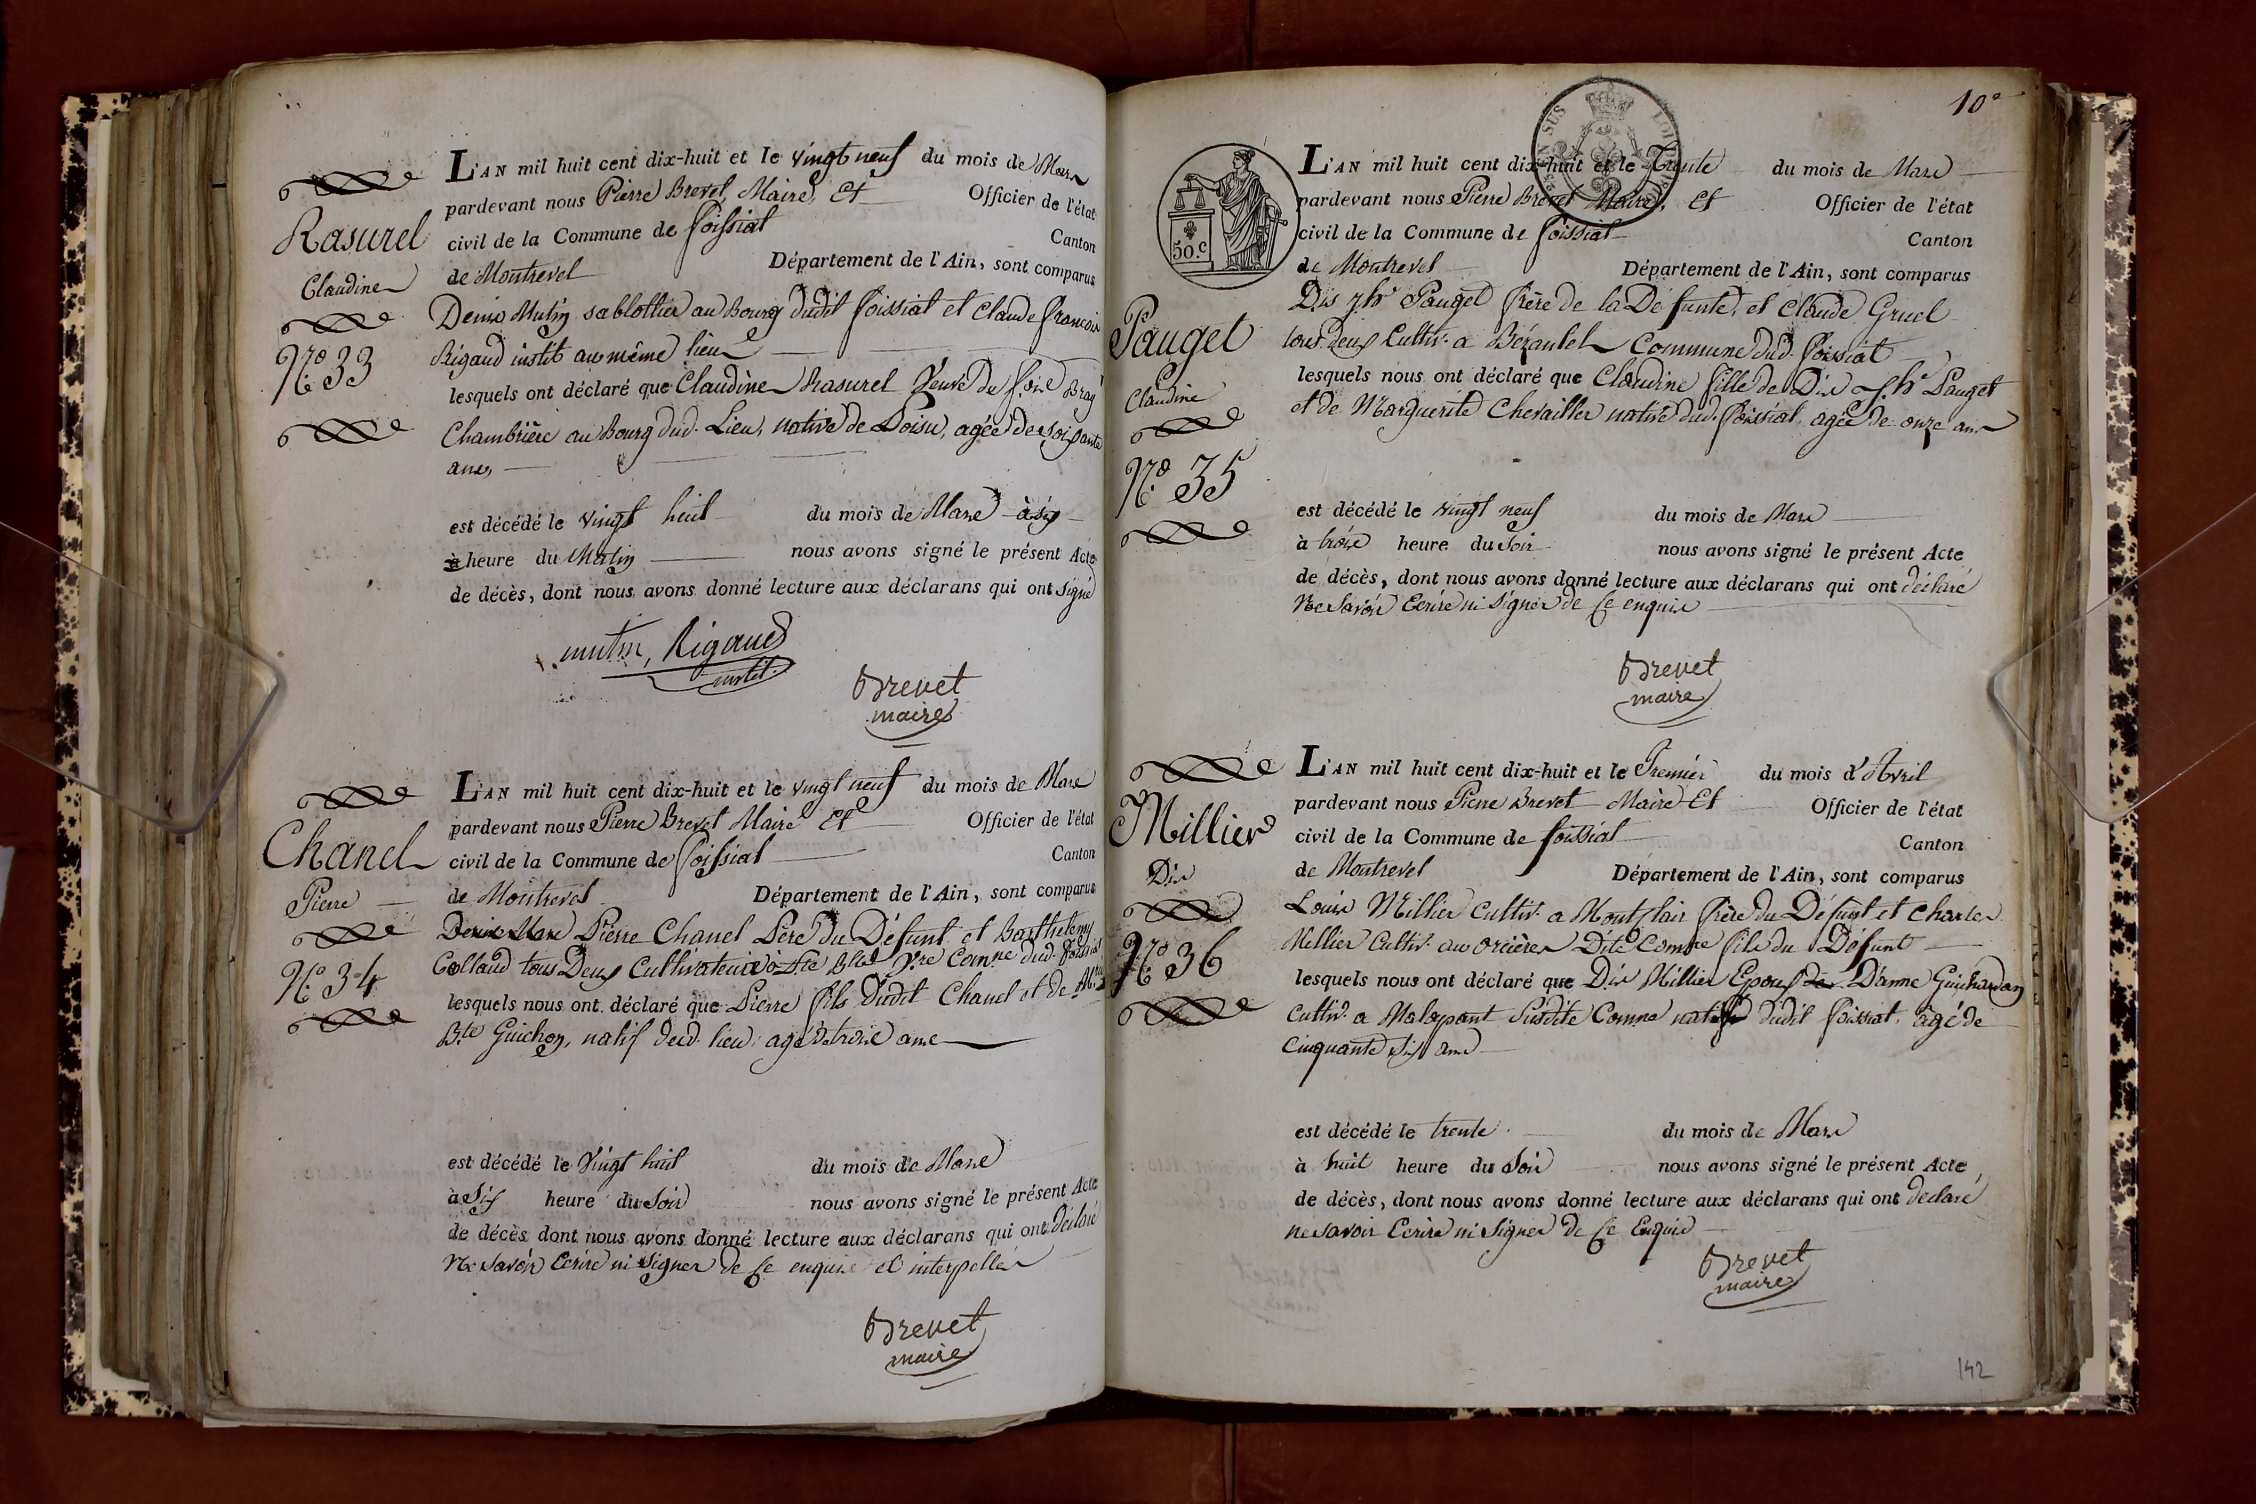 Rasurel
Claudine
N.o 33
L'AN mil huit cent dix-huit et le vingt neuf du mois de Mars
pardevant nous Pierre Brevet, Maire, Et Officier de l'état
civil de la Commune de foissiat Canton
de Montrevel Département de l'Ain, sont comparus
Denis Mutin sablottier au Bourg dudit foissiat et Claude françois
Rigaud instit au même lieu
lesquels ont déclaré que Claudine Rasurel Veuve de
Chambrière au Bourg dud. Lieu, native de Loisu, agée de soissante
ans
est décédé le vingt huit du mois de Mars à six
heure du Matin nous avons signé le présent Acte
de décès, dont nous avons donné lecture aux déclarans qui ont signé
mutin, Rigaud
instit.
Brevet
maire
Chanel
Pierre
N.o 34
L'AN mil huit cent dix-huit et le vingt neuf du mois de Mars
pardevant nous Pierre Brevet Maire Et Officier de l'état
civil de la Commune de foissiat Canton
de Montrevel Département de l'Ain, sont comparus
Pierre Chanel Père du Défunt et Barthelemy
Collaud tous Deux Cultivateurs Comne dud. foissiat
lesquels nous ont déclaré que Pierre fils Dudit Chanel et de
Bte Guichon, natif dud. lieu agé de trois ans
est décédé le Vingt huit du mois de Mars
à Six heure du Soir nous avons signé le présent Acte
de décès dont nous avons donné lecture aux déclarans qui ont déclaré
Ne savoir Ecrire ni signer de ce enquis et interpellés
Brevet
maire
10e
EN SUS
50.c
Pauget
Claudine
N.o 35
L'AN mil huit cent dix-huit et le Trente du mois de Mars
pardevant nous Pierre Brevet Maire, Et Officier de l'état
civil de la Commune de foissiat Canton
de Montrevel Département de l'Ain, sont comparus
Dis Jh. Pauget frère de la Défunte, et Claude Gruel
tous deux Cultiv. a Bézantel Commune dud. foissiat
lesquels nous ont déclaré que Claudine fille de Dis Jh. Pauget
et de Marguerite Chevailler native dud. foissiat, agée de onze ans
est décédé le vingt neuf du mois de Mars
à trois heure du Soir nous avons signé le présent Acte
de décès, dont nous avons donné lecture aux déclarans qui ont déclaré
Ne Savoir Ecrire ni signer de ce enquis
Brevet
maire
Millier
Dis
N.o 36
L'AN mil huit cent dix-huit et le Premier du mois d'Avril
pardevant nous Pierre Brevet Maire Et Officier de l'état
civil de la Commune de foissiat Canton
de Montrevel Département de l'Ain, sont comparus
Louis Millier Cultiv. a Montflair frère du Défunt et Charles
Millier Cultiv. au orcières Dite Comne fils du Défunt
lesquels nous ont déclaré que Dis Millier Epoux D'anne Guichardan
Cultiv. a Malapant Susdite Comne natif dudit foissiat. agé de
Cinquante Six ans
est décédé le trente du mois de Mars
à huit heure du Soir nous avons signé le présent Acte
de décès, dont nous avons donné lecture aux déclarans qui ont déclaré
ne savoir Ecrire ni signer de ce Enquis
Brevet
maire
142